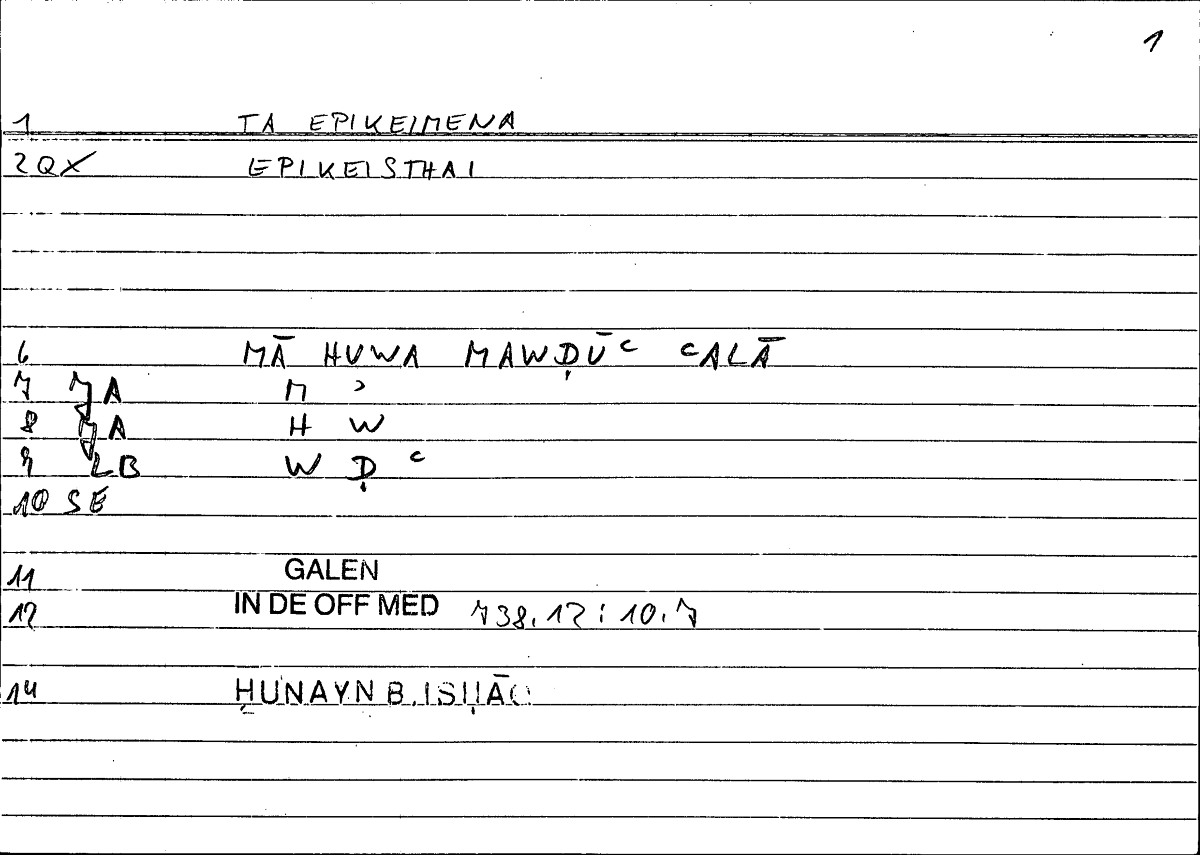 1
1 TA EPIKEIMENA
2QX EPIKEISTHAI
6 MĀ HUWA MAWḌŪʿ ʿALĀ
7 7A M ʾ
8 7A H W
9 2B W Ḍ ʿ
10 SE
11 GALEN
12 IN DE OFF MED 738.12 : 10.7
14 ḤUNAYN B. ISḤĀQ